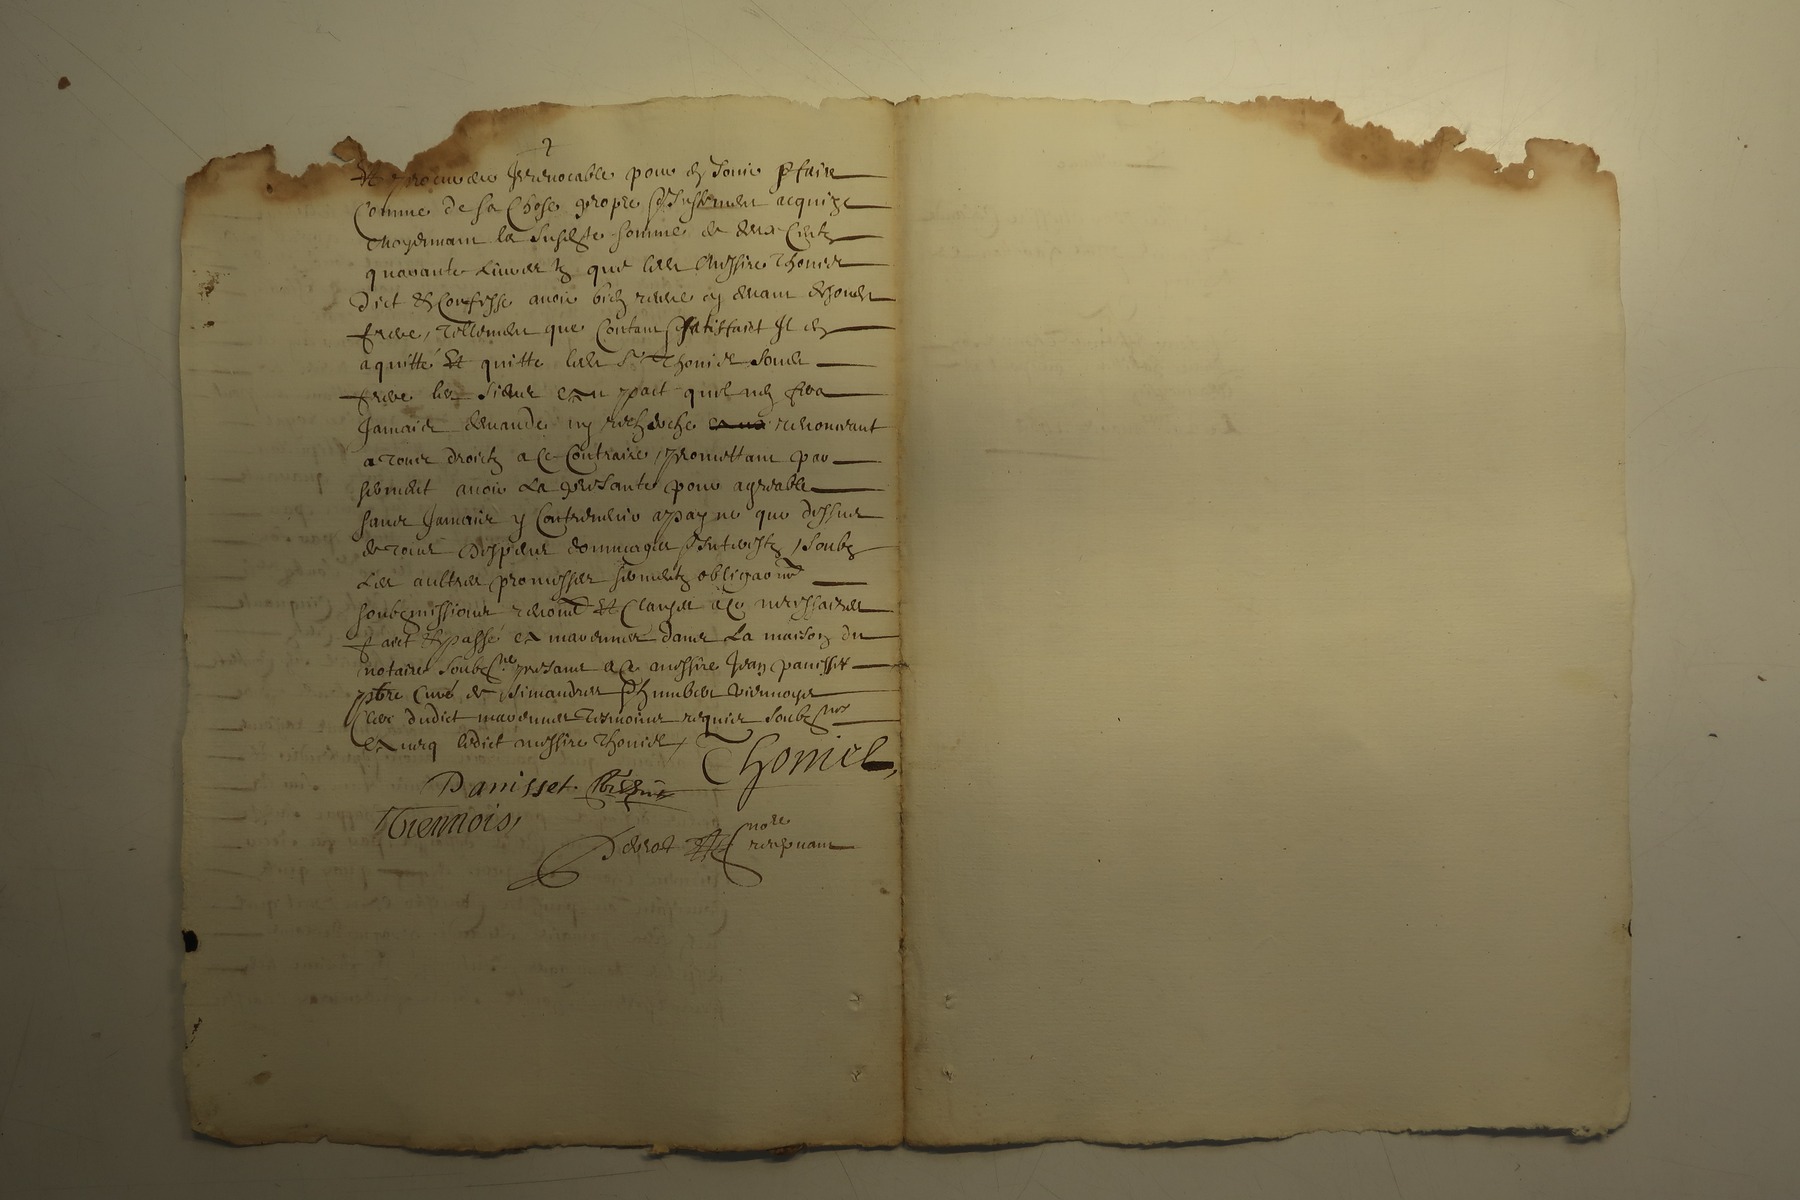 Et procureur Irrevocable pour en Jouir & faire
Comme de sa Chose propre & Justement acquize
Moyennant la susdte somme de deux Centz
quarante Livres tz que ledt Messire Thonier
Dict & Confesse avoir bien receu cy devant dudt
frere, tellement que Contant & satisfaict Il en
a quitté Et quitte ledt Sr Thonier sondt
frere les siens avec pact quil nen fera
Jamais demande ny recherche renonceant
a tous droictz a Ce Contraire, promettant par
serment avoir La presante pour agreable
sans Jamais y Contrevenir a payne que dessus
de tous despens dommages & Interestz, soubz
Les aultres promesses sermentz obligaons
soubzmissions renons Et Clauses a Ce necessaires
faict & passé dans La maison du
notaire soubzne presant a Ce messire Jean panisset
pbre Curé de Simandres & humbert viennoys
Clerc dudict tesmoins requis soubznes
avec ledict messire Thonier
Thonier
Panisset
Viennois
nore
recepvant